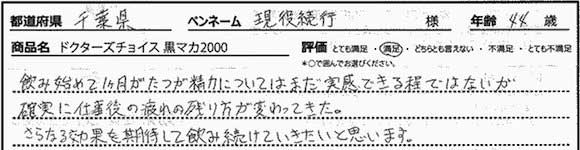 都道府県 千葉県 ペンネーム 現役続行 様 年齢 44 歳
商品名 ドクターズチョイス 黒マカ2000 評価 とても満足・満足・どちらとも言えない・不満足・とても不満足
*○で囲んでお選びください。
飲み始めて1ヶ月がたつが精力についてはまだ実感できる程ではないが
確実に仕事後の疲れの残り方が変わってきた。
さらなる効果を期待して飲み続けていきたいと思います。